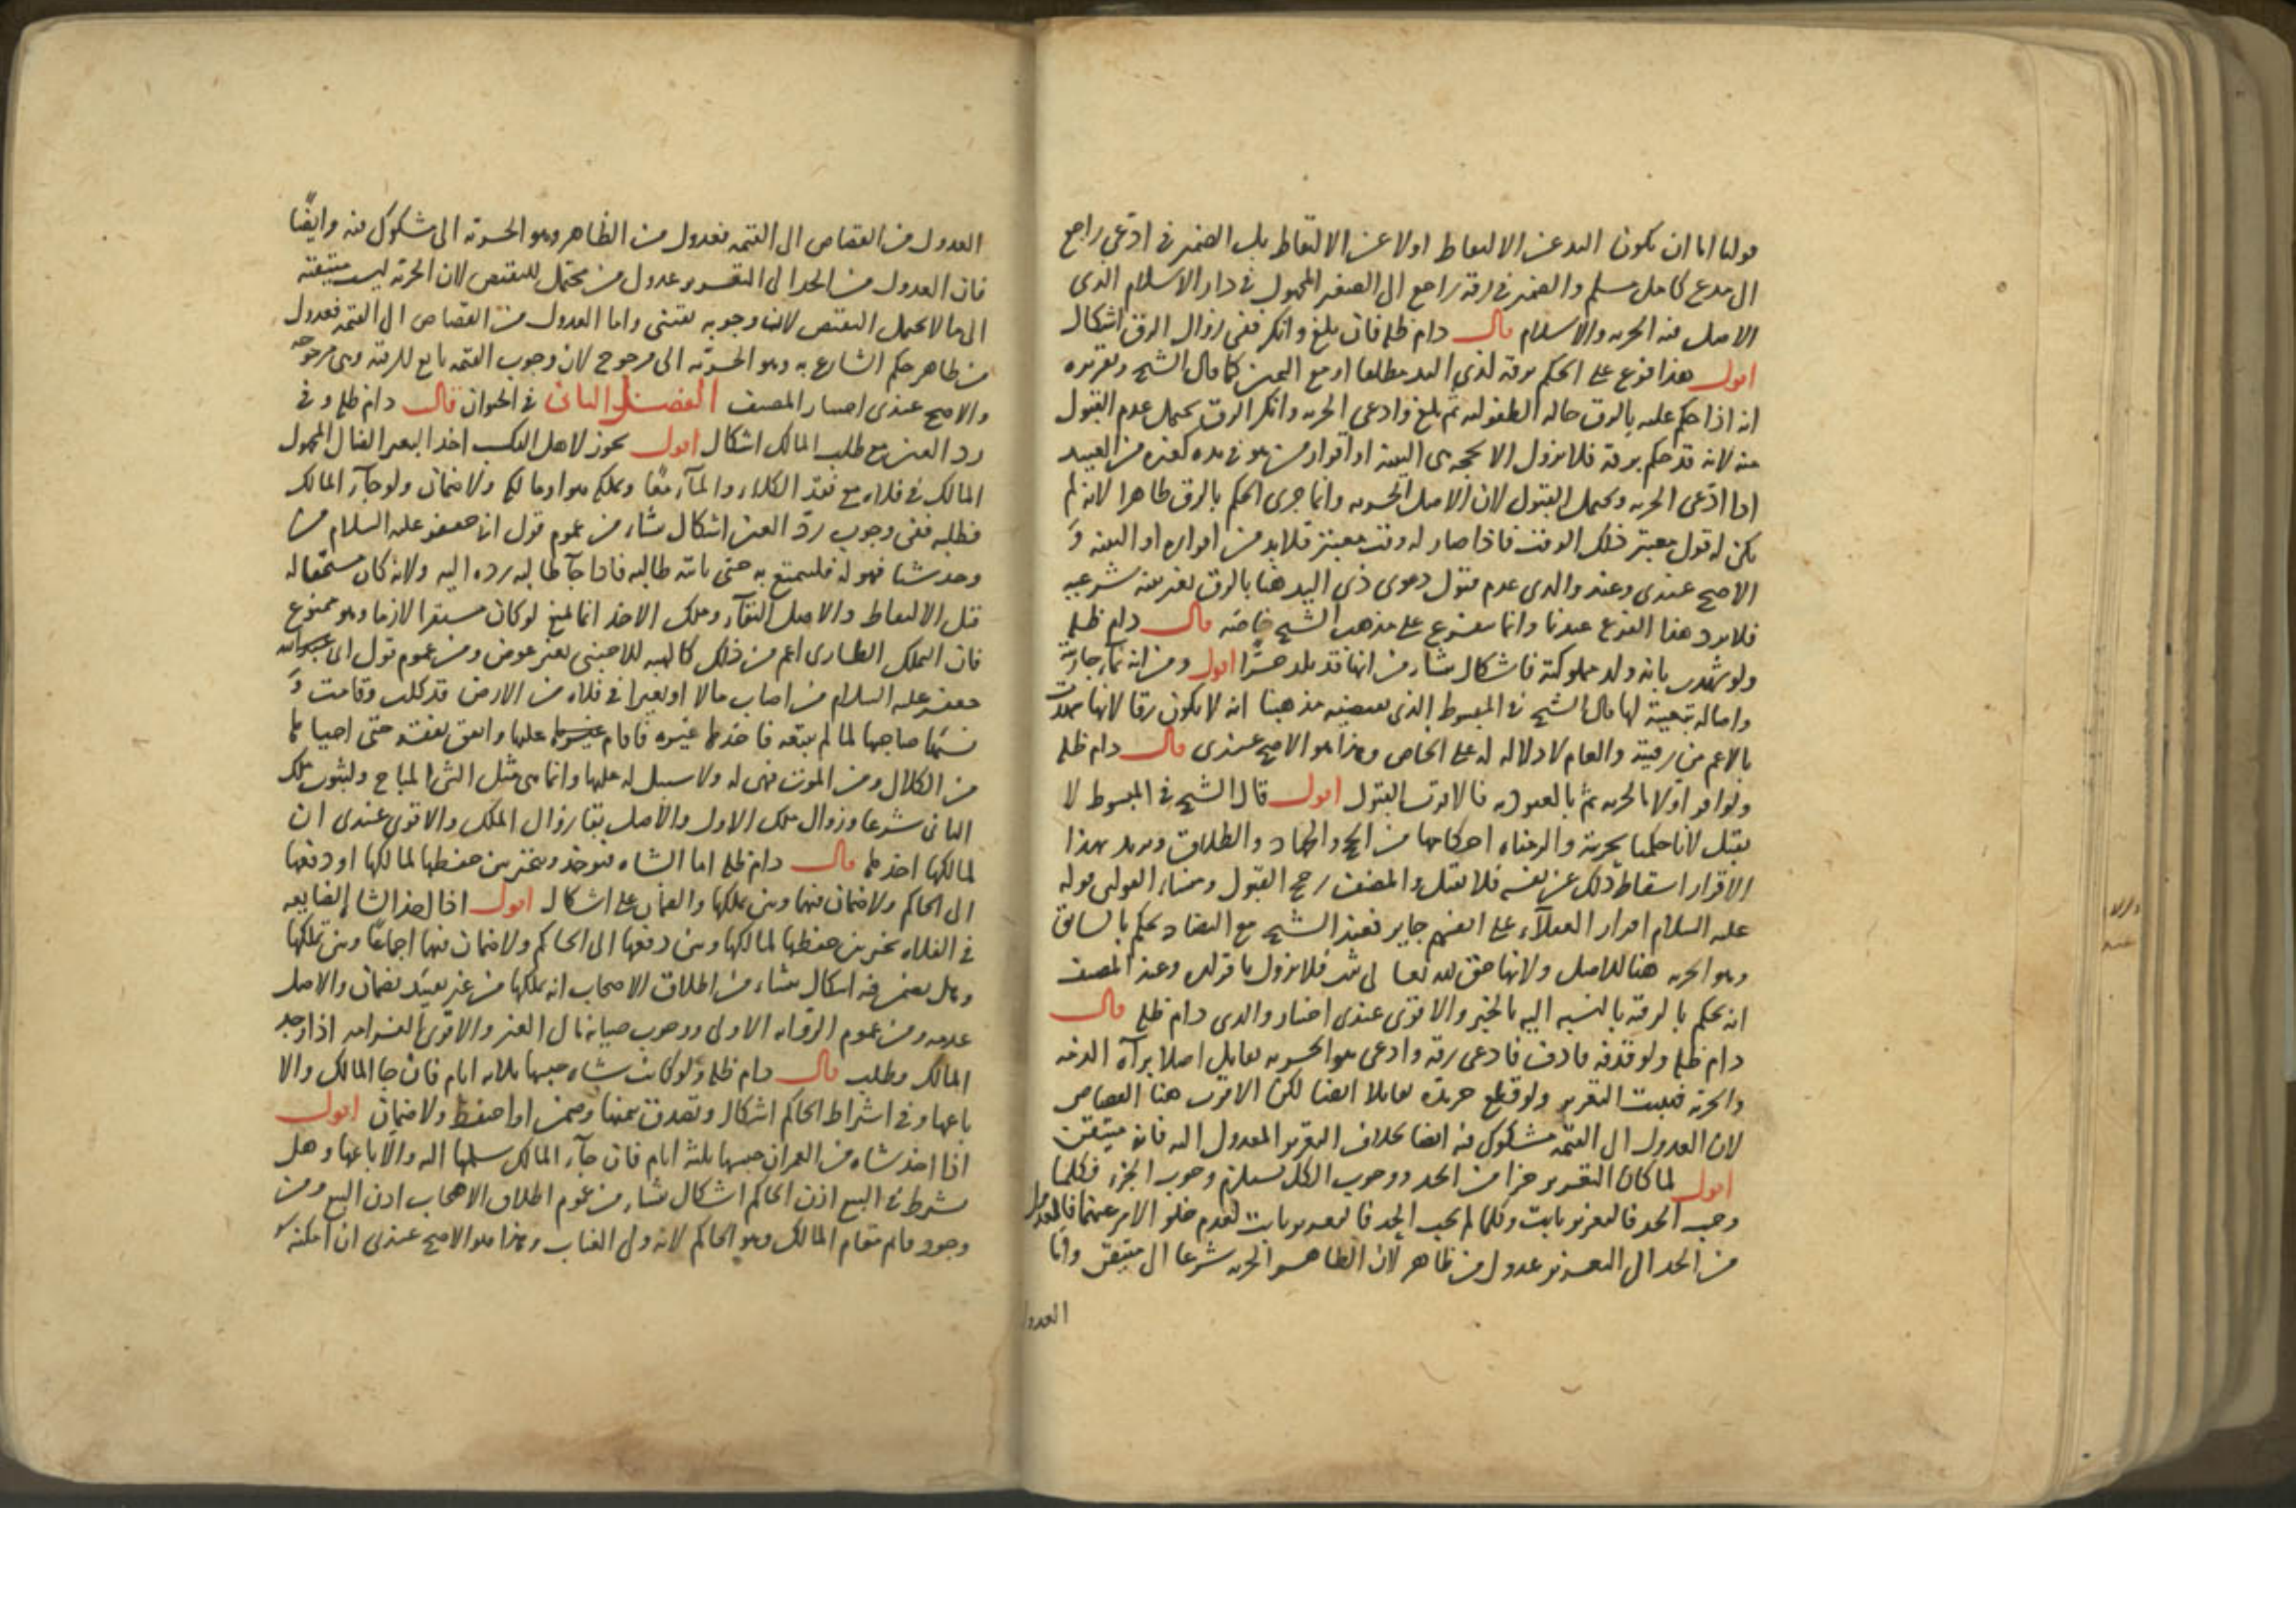 قولنا اما ان يكون اليد عن الالتقاط اولا عن الالتقاط بل الضمير في ادعى راجع
الى مدع كامل مسلم والضمير في رقه راجع الى الصغير المجهول في دار الاسلام الذي
الاصل فيه الحرية والاسلام قال دام ظله فان بلغ وانكر ففي زوال الرق اشكال
اقول هذا فرع على الحكم برقه لذي اليد مطلقا او مع اليمين كما قال الشيخ وتقريره
انه اذا حكم عليه بالرق حالة الطفولية ثم بلغ وادعى الحرية وانكر الرق يحتمل عدم القبول
منه لانه قد حكم برقه فلا يزول الا بحجة هي البينة او اقرار من هو في يده كغيره من العبيد
اذا ادعى الحرية ويحتمل القبول لان الاصل الحرية وانما جرى الحكم بالرق ظاهرا لانه لم
يكن له قول معتبر ذلك الوقت فاذا صار له وقت معتبر فلابد من اقراره او البينة و
الاصح عندي وعند والدي عدم قبول دعوى ذي اليد هنا بالرق بغير بينة شرعية
فلا يرد هذا الفرع عندنا وانما يتفرع على مذهب الشيخ خاصة قال دام ظله
ولو شهدت بانه ولد مملوكته فاشكال ينشأ من انها قد تلد حرا اقول ومن انه نماء جاريته
واصالة تبعيته لها قال الشيخ في المبسوط الذي يقتضيه مذهبنا انه لا يكون رقا لانها شهدت
بالاعم من رقيته والعام لا دلالة له على الخاص وهذا هو الاصح عندي قال دام ظله
ولو اقر اولا بالحرية ثم بالعبودية فالاقرب القبول اقول قال الشيخ في المبسوط لا
يقبل لانا حكمنا بحريته والزمناه احكامها من الحج والجهاد والطلاق ويريد بهذا
الاقرار اسقاط ذلك عن نفسه فلا يقبل والمصنف رجح القبول ومنشأ القولين قوله
عليه السلام اقرار العقلاء على انفسهم جايز فعند الشيخ مع التضاد يحكم بالسابق
وهو الحرية هنا للاصل ولانها حق لله تعالى فلا يزول باقراره وعند المصنف
انه يحكم بالرقية بالنسبة اليه بالاخير والاقوى عندي اختيار والدي دام ظله قال
دام ظله ولو قذفه قاذف فادعى رقه وادعى هو الحرية تقابل اصلا براءة الذمة
والحرية فيثبت التعزير ولو قطع حر يده تقابلا ايضا لكن الاقرب هنا القصاص
لان العدول الى القيمة مشكوك فيه ايضا بخلاف التعزير المعدول اليه فانه متيقن
اقول لما كان التعزير جزءا من الحد ووجوب الكل يستلزم وجوب الجزء فكلما
وجب الحد فالتعزير ثابت وكلما لم يجب الحد فالتعزير ثابت لعدم خلو الامر عنهما فالعدول
من الحد الى التعزير عدول من ظاهر لان الظاهر الحرية شرعا الى متيقن واما
العدول
العدول من القصاص الى القيمة فعدول من الظاهر وهو الحرية الى مشكوك فيه وايضا
فان العدول من الحد الى التعزير عدول من محتمل للنقيض لان الحرية ليست متيقنة
الى ما لا يحتمل النقيض لان وجوبه يقيني واما العدول من القصاص الى القيمة فعدول
من ظاهر حكم الشارع به وهو الحرية الى مرجوح لان وجوب القيمة تابع للرقية وهي مرجوحة
والاصح عندي اختيار المصنف الفصل الثاني في الحيوان قال دام ظله وفي
رد العين مع طلب المالك اشكال اقول يجوز لاهل الملك اخذ البعير الضال المجهول
المالك في فلاة مع فقد الكلاء والماء معا ويملكه هو اوماله ولا ضمان ولو جاء المالك
فطلبه ففي وجوب رد العين اشكال ينشأ من عموم قول ابي جعفر عليه السلام من
وجد شيئا فهو له فليتمتع به حتى ياتيه طالبه فاذا جاء طالبه رده اليه ولانه كان مستحقا له
قبل الالتقاط والاصل البقاء وملك الاخذ انما يمنع لو كان مستقرا لازما وهو ممنوع
فان التملك الطاري اعم من ذلك كالهبة للاجنبي بغير عوض ومن عموم قول ابي عبد الله
جعفر عليه السلام من اصاب مالا او بعيرا في فلاة من الارض قد كلت وقامت و
نسيها صاحبها لما لم يتبعه فاخذها غيره فاقام عليها وانفق نفقته حتى احياها
من الكلال ومن الموت فهي له ولا سبيل له عليها وانما هي مثل الشئ المباح ولثبوت ملك
الثاني شرعا وزوال ملك الاول والاصل بقاء زوال الملك والاقوى عندي ان
لمالكها اخذها قال دام ظله اما الشاة فتوخذ ويتخير بين حفظها لمالكها او دفعها
الى الحاكم ولا ضمان فيهما وبين تملكها والضمان على اشكال اقول اذا اخذ الشاة الضايعة
في الفلاة تخير بين حفظها لمالكها وبين دفعها الى الحاكم ولا ضمان فيهما اجماعا وبين تملكها
وهل يضمن فيه اشكال ينشاء من اطلاق الاصحاب انه يملكها من غير تقييد بضمان والاصل
عدمه ومن عموم الرواية الاولى ووجوب صيانة مال الغير والاقوى الغرامة اذا وجد
المالك وطلب قال دام ظله ولو كانت شاة حبسها ثلاثة ايام فان جا المالك والا
باعها وفي اشتراط الحاكم اشكال وتصدق بثمنها وضمن او احتفظ ولا ضمان اقول
اذا اخذ شاة من العمران حبسها ثلثة ايام فان جاء المالك سلمها اليه والا باعها وهل
يشترط في البيع اذن الحاكم اشكال ينشأ من عموم اطلاق الاصحاب اذن البيع ومن
وجود قائم مقام المالك وهو الحاكم لانه ولي الغياب وهذا هو الاصح عندي ان امكنه